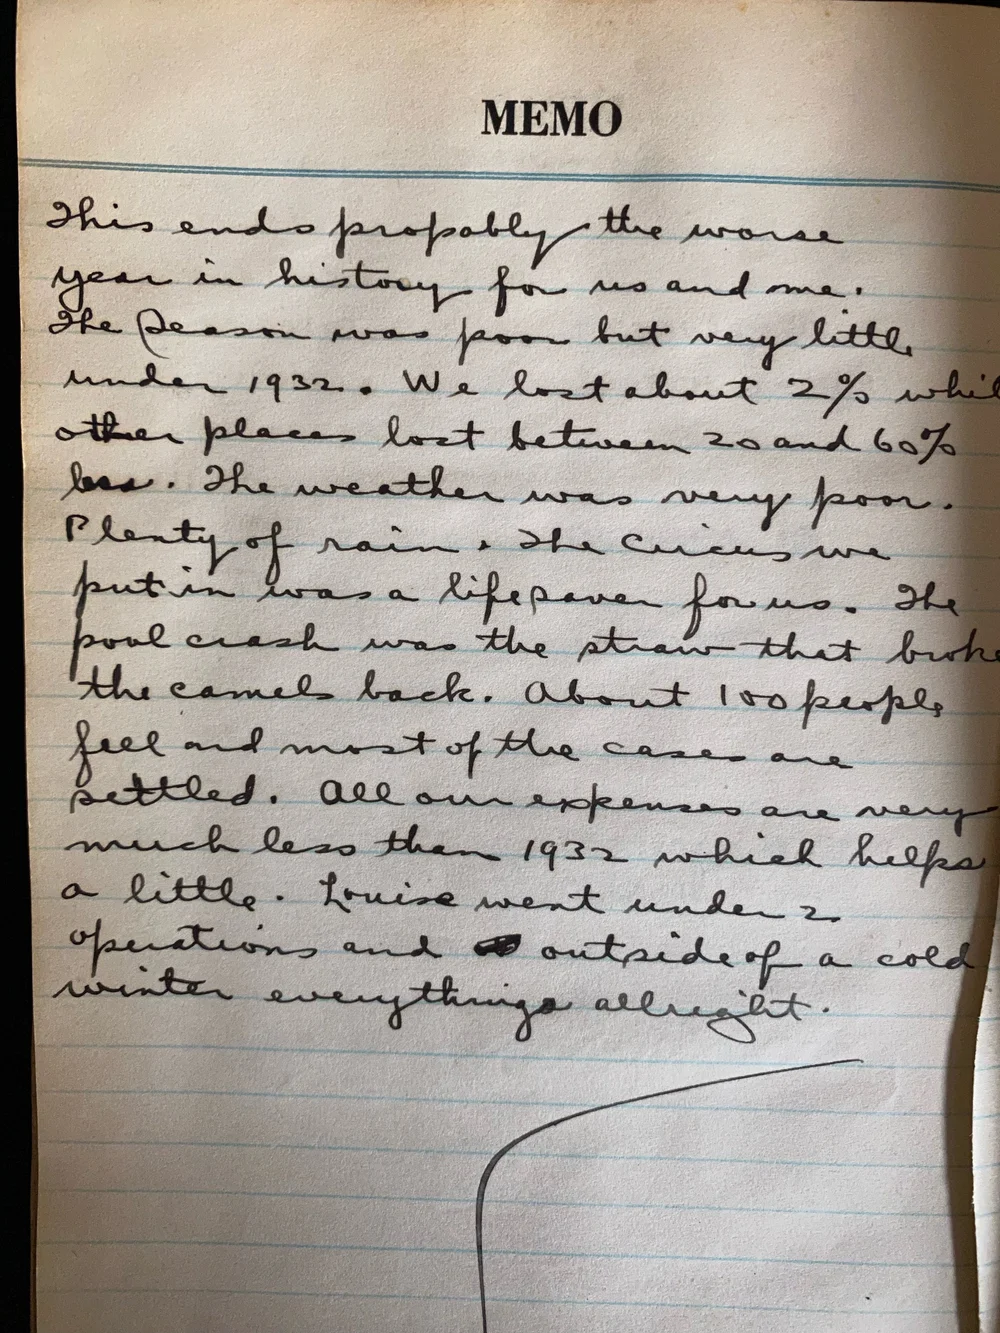 MEMO
This ends propably the worse
year in history for us and me.
The season was poor but very little
under 1932. We lost about 2% whil
other places lost between 20 and 60%
less. The weather was very poor.
Plenty of rain. The Circus we
put in was a lifesaver for us. The
pool crash was the straw that broke
the camels back. About 100 people
fell and most of the cases are
settled. All our expenses are very
much less than 1932 which helps
a little. Louise went under 2
operations and outside of a cold
winter everythings allright.